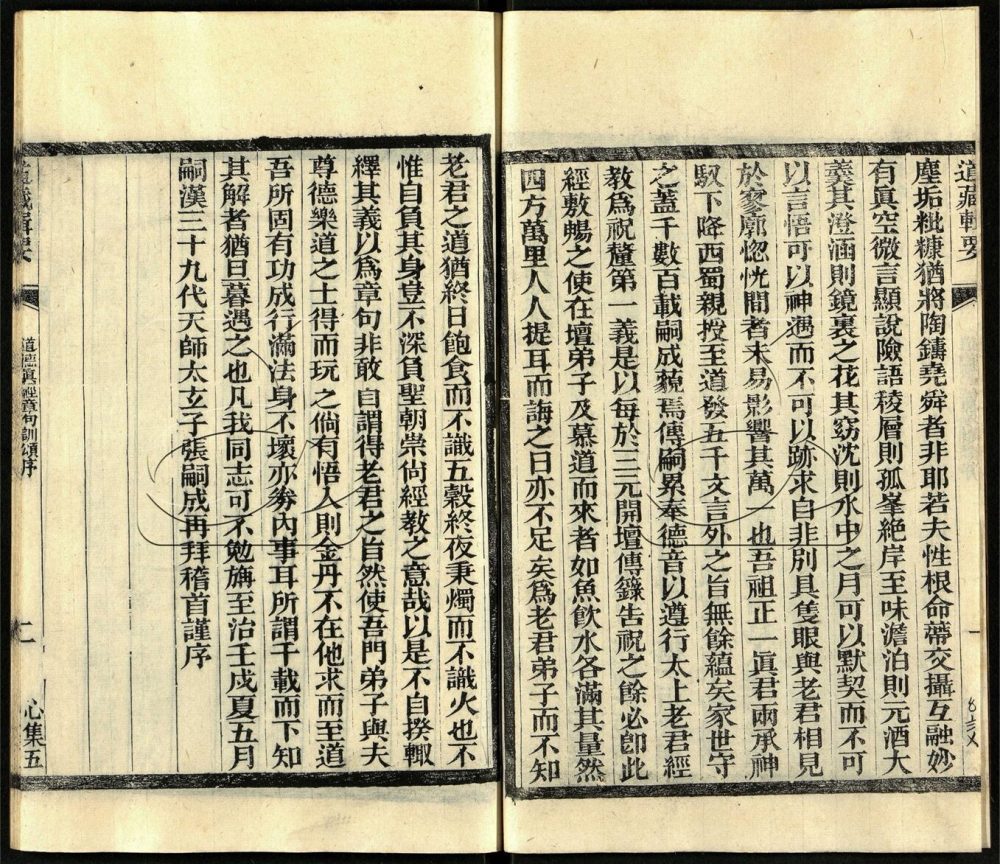 道藏輯要
塵垢粃糠猶將陶鑄堯舜者非耶若夫性根命蔕交攝互融妙
有眞空微言顯說險語稜層則孤峯絶岸至味澹泊則元酒大
羹其澄涵則鏡裏之花其窈沈則水中之月可以默契而不可
以言悟可以神遇而不可以跡求自非別具隻眼與老君相見
於寥廓惚恍間者未易影響其萬一也吾祖正一眞君兩承神
馭下降西蜀親授至道發五千文言外之旨無餘蘊矣家世守
之蓋千數百載嗣成藐焉傳嗣累奉德音以遵行太上老君經
教爲祝釐第一義是以每於三元開壇傳籙告祝之餘必卽此
經敷暢之使在壇弟子及慕道而來者如魚飮水各滿其量然
四方萬里人人提耳而誨之日亦不足矣爲老君弟子而不知
老君之道猶終日飽食而不識五穀終夜秉燭而不識火也不
惟自負其身豈不深負聖朝崇尙經教之意哉以是不自揆輙
繹其義以爲章句非敢自謂得老君之旨然使吾門弟子與夫
尊德樂道之士得而玩之倘有悟入則金丹不在他求而至道
吾所固有功成行滿法身不壞亦劵內事耳所謂千載而下知
其解者猶旦暮遇之也凡我同志可不勉旃至治壬戍夏五月
嗣漢三十九代天師太玄子張嗣成再拜稽首謹序
道藏輯要
道德眞經章句訓頌序
二
心集五